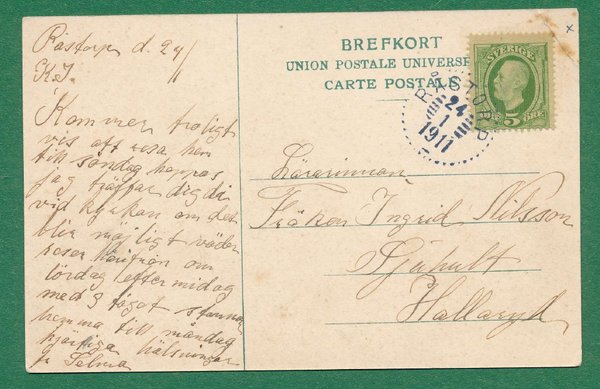 Råstorp d. 24/1
K.I.
Kommer troligt
vis att resa hem
till söndag hoppas
jag träffar dig då
vid kyrkan om det
blir möjligt väder
reser härifrån om
lördag eftermidag
med 3 tåget stannar
hemma till måndag
hjertliga hälsningar
fr Selma
BREFKORT
UNION POSTALE UNIVERSE
CARTE POSTALE
SVERIGE
5 ÖRE
RÅSTORP
24
1
1911
Lärarinnan
Fröken Ingrid Nilsson
Sjöhult
Hallaryd
x